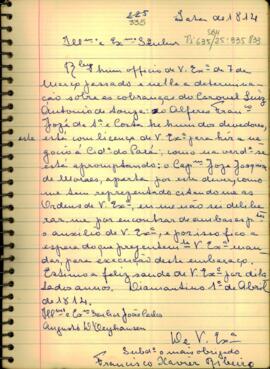 225
335
Data de 1814
Illmo e Exmo Senhor
695/25-835
hum officio de V. Exa de 7 de
Março passado e nelle a determina-
ção sobre as cobranças do Coronel Luiz
Antonio de Souza: o Alferes
José de Sta e Costa e hum dos devedores,
este está com licença de V. Exa para hir a ne-
gocio á Cide do Pará; como na verde se
está apromptando: o Capm Joze Joaqm
de Moraes, aperta por este devor, como
me tem reprezentado citandome as
Ordens de V. Exa, eu me não sei delibe-
rar, me por encontrar de embaraço
o auxilio de V. Exa, e por isso fico a
espera do que prezentemte V. Exa man-
dar, para execução deste embaraço.
Estimo a feliz saude de V. Exa por dila-
tados annos. Diamantino 1º de Abril
de 1814.
Illmo e Exmo Senhor João Carlos
Augusto D'Oeynhausen
De V. Exa
Subdo o mais obrigado
Francisco Xavier Ribeiro